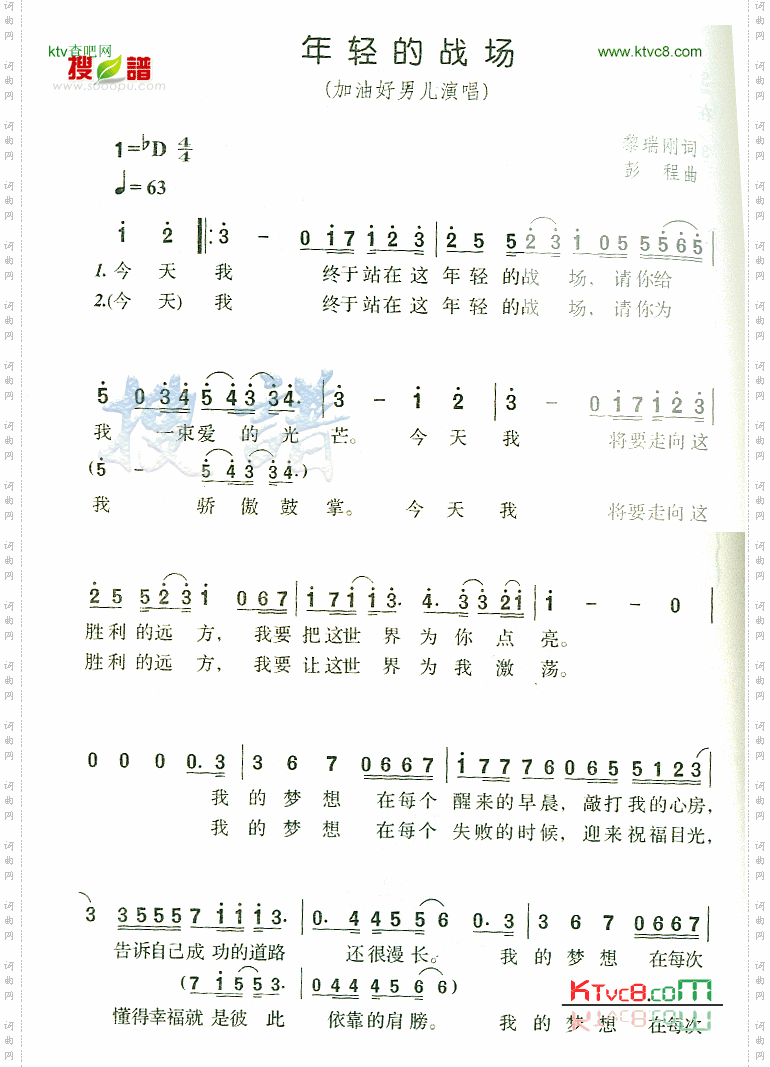 ktv查吧网
搜 譜
www.sooopu.com
年轻的战场
(加油好男儿演唱)
www.ktvc8.com
1=♭D 4/4
♩=63
黎瑞刚词
彭 程曲
1̇ 2̇ ‖: 3̇ – 0 1̇ 7 1̇ 2̇ 3̇ | 2̇ 5 5 2̇ 3̇ 1̇ 0 5 5 5 5 6 5 |
1. 今 天 我 终于站在这 年轻的战 场, 请你给
2.(今 天) 我 终于站在这 年轻的战 场, 请你为
5̇ 0 3̇ 4̇ 5̇ 4̇ 3̇ 3̇ 4̇. | 3̇ – 1̇ 2̇ | 3̇ – 0 1̇ 7 1̇ 2̇ 3̇ |
我 一束爱 的 光 芒。 今 天 我 将要走向这
(5̇ – 5̇ 4̇ 3̇ 3̇ 4̇.)
我 骄 傲 鼓 掌。 今 天 我 将要走向这
2̇ 5 5 2̇ 3̇ 1̇ 0 6 7 | 1̇ 7 1̇ 1̇ 3̇. 4̇. 3̇ 3̇ 2̇ 1̇ | 1̇ – – 0 |
胜利的远 方, 我要把这世 界 为 你 点 亮。
胜利的远 方, 我要让这世 界 为 我 激 荡。
0 0 0 0. 3 | 3 6 7 0 6 6 7 | 1̇ 7 7 7 6 0 6 5 5 1 2 3 |
我 的 梦 想 在每个 醒来的早晨, 敲打我的心房,
我 的 梦 想 在每个 失败的时候, 迎来祝福目光,
3 3 5 5 5 7 1̇ 1̇ 1̇ 3. | 0. 4 4 4 5 5 6 0. 3 | 3 6 7 0 6 6 7 |
告诉自己成功的道路 还很漫长。 我 的 梦 想 在每次
(7 1̇ 5 5 3. | 0 4 4 4 5 6)
KTvc8.com
懂得幸福就是彼 此 依靠的肩膀。 我 的 梦 想 在每次
词曲网